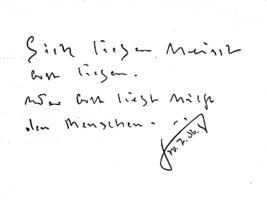 Sich lieben heisst
Gott lieben.
Wer Gott liebt hilft
den Menschen. ..